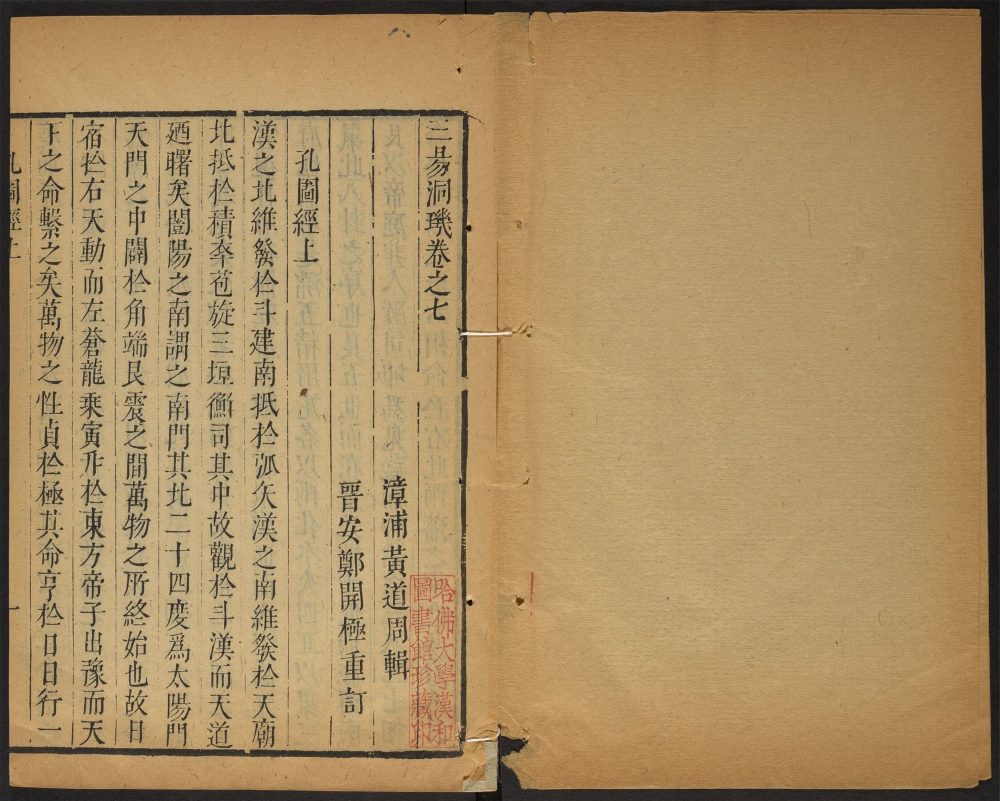 三易洞璣卷之七
漳浦黃道周輯
晉安鄭開極重訂
孔圖經上
漢之北維發於斗建南抵於弧矢漢之南維發於天廟
北抵於積桼苞旋三垣衡司其中故觀於斗漢而天道
廼曙矣闓陽之南謂之南門其北二十四度爲太陽門
天門之中闢於角端艮震之間萬物之所終始也故日
宿於右天動而左蒼龍乘寅升於東方帝子出豫而天
下之命繫之矣萬物之性貞於極其命亨於日日行一
孔圖經上
一
哈佛大學漢和
圖書館珍藏印